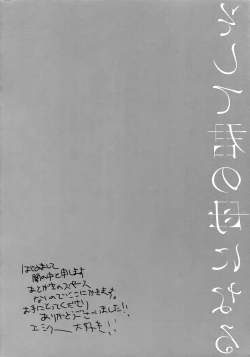 の母になる
はじめまして
闇の中と申します
あとがきのスペース
ないのでここにかきます。
お手にとってくださり
ありがとうございました!!
大好き!!